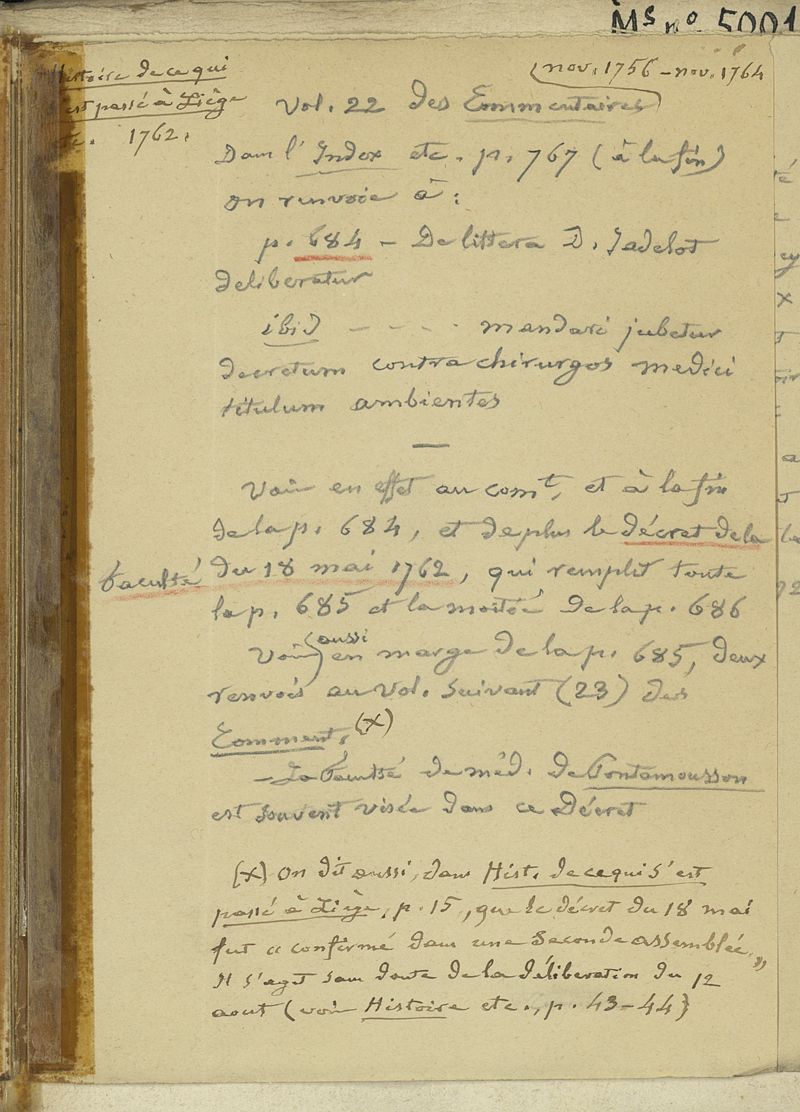 Ms no 5001
Histoire de ce qui
s'est passé à Liège
etc. 1762.
(nov. 1756 – nov. 1764
Vol. 22 des Commentaires)
Dans l'Index etc. p. 767 (à la fin)
on renvoie à :
p. 684 – De littera D. Jadelot
deliberatur
ibid - - - - mandari jubetur
decretum contra chirurgos medici
titulum ambientes
—
Voir en effet au comt, et à la fin
de la p. 684, et de plus le décret de la
Faculté du 18 mai 1762, qui remplit toute
la p. 685 et la moitié de la p. 686
Voir (aussi) en marge de la p. 685, deux
renvois au Vol. suivant (23) des
Comment. (x)
– La Faculté de méd. de Pontamousson
est souvent visée dans ce Décret
(x) On dit aussi, dans Hist. de ce qui s'est
passé à Liège, p. 15, que le décret du 18 mai
fut « confirmé dans une seconde assemblée. »
Il s'agit sans doute de la délibération du 12
aout (voir Histoire etc., p. 43–44)